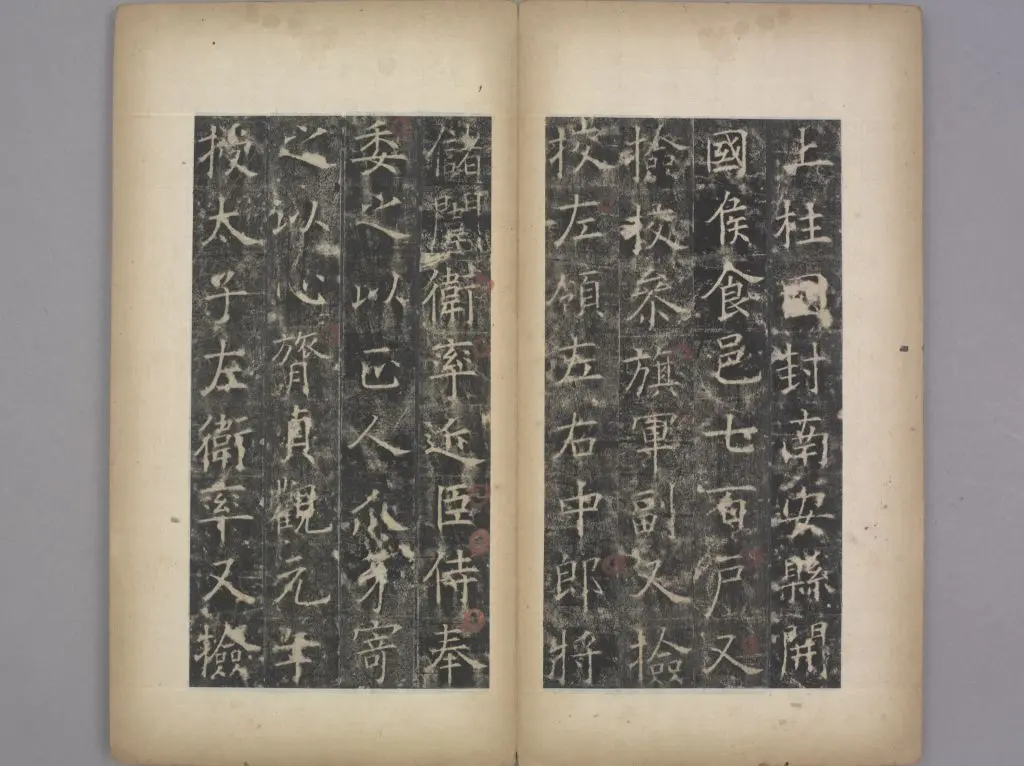 上柱国封南安縣開
國侯食邑七百戶又
撿校叅旗軍副又撿
校左領左右中郎將
儲闈衛率近臣侍奉
委之以正人爪牙寄
之以心膂貞觀元年
授太子左衛率又撿